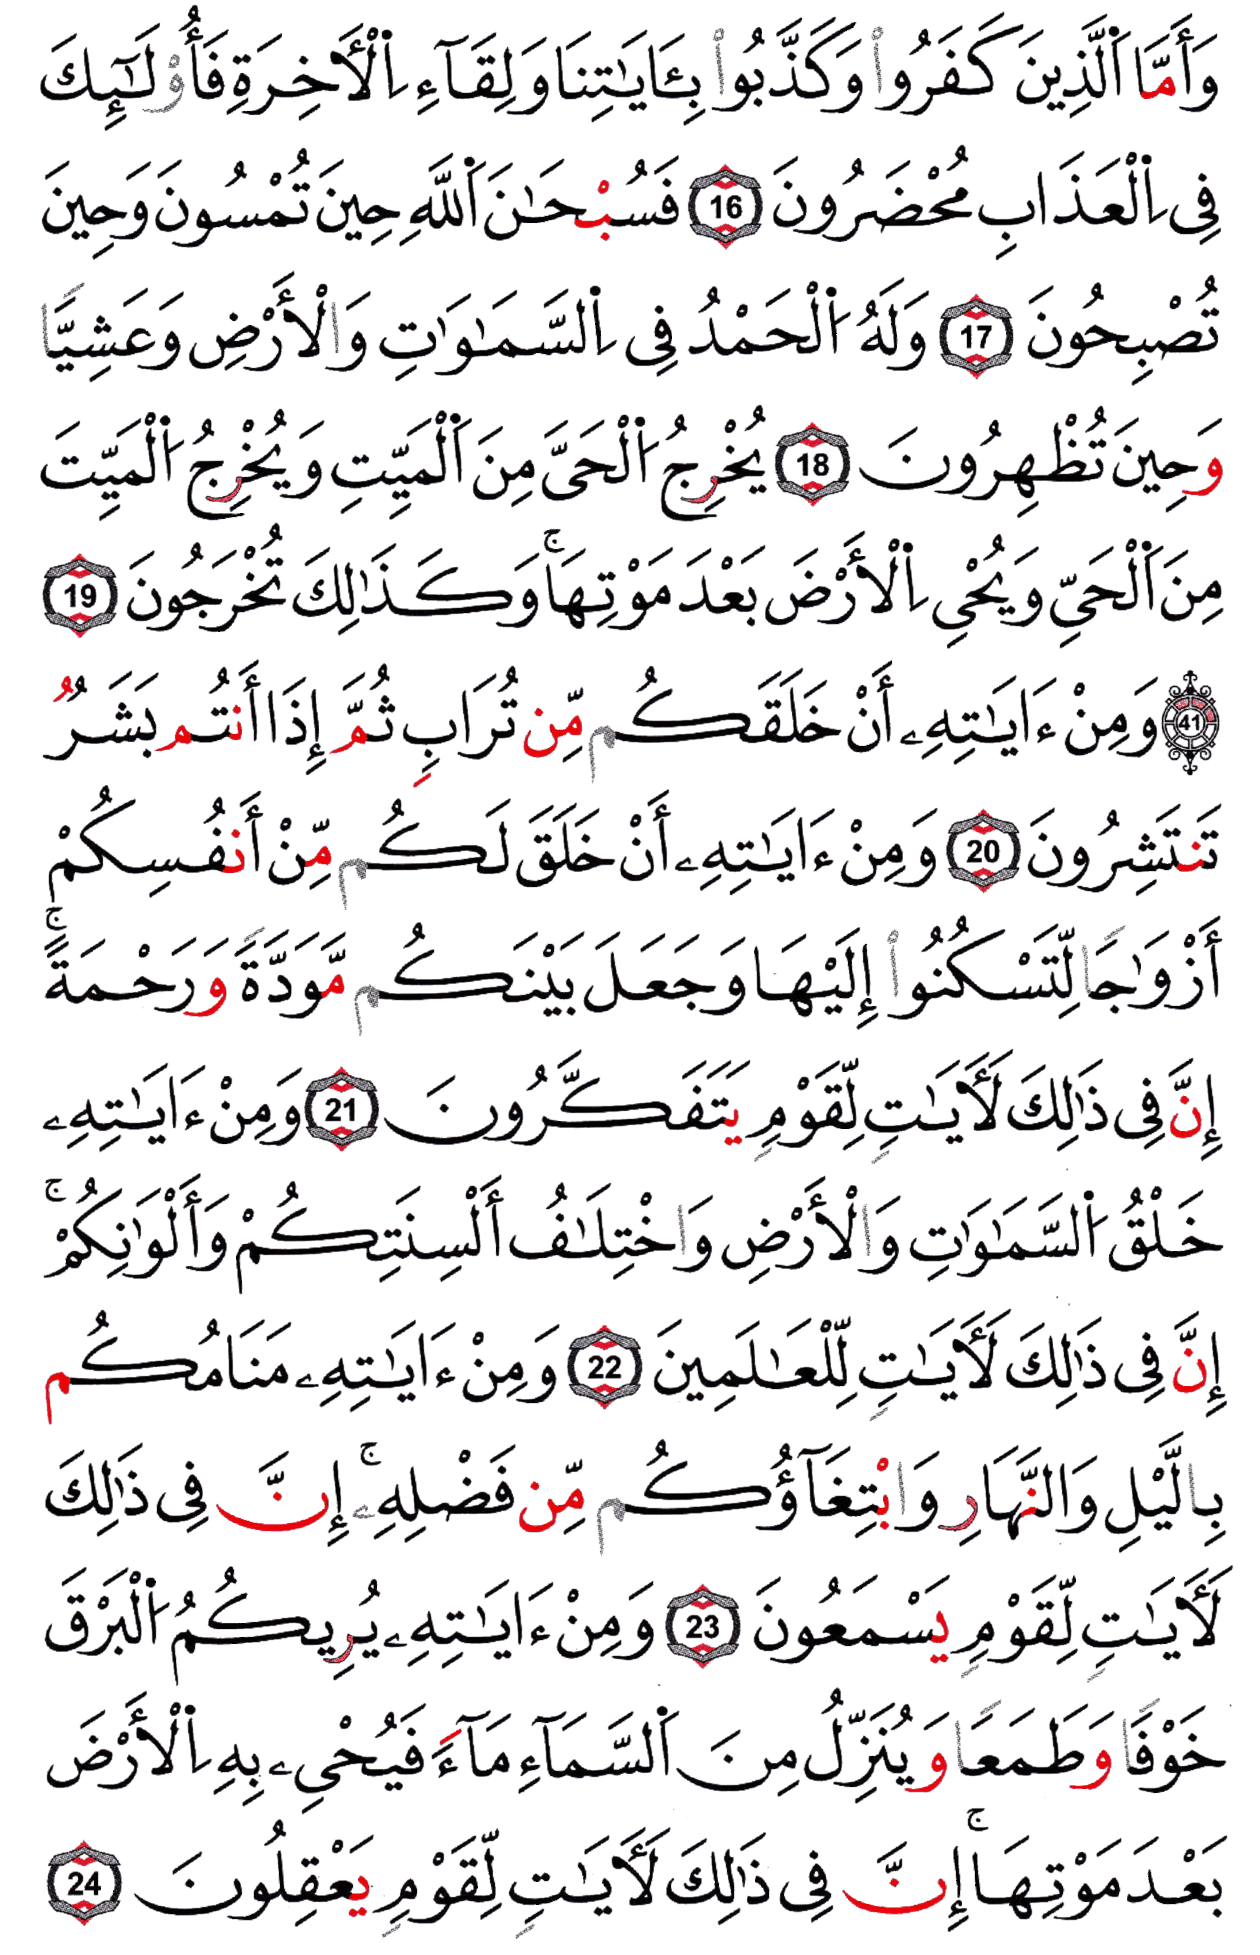 وَأَمَّا اَ۬لَّذِينَ كَفَرُواْ وَكَذَّبُواْ بِـَٔايَٰتِنَا وَلِقَآءِ اِ۬لْأَخِرَةِ فَأُوْلَٰٓئِكَ
فِي اِ۬لْعَذَابِ مُحْضَرُونَ 16 فَسُبْحَٰنَ اَ۬للَّهِ حِينَ تُمْسُونَ وَحِينَ
تُصْبِحُونَ 17 وَلَهُ اُ۬لْحَمْدُ فِي اِ۬لسَّمَٰوَٰتِ وَالْأَرْضِ وَعَشِيّٗا
وَحِينَ تُظْهِرُونَ 18 يُخْرِجُ اُ۬لْحَيَّ مِنَ اَ۬لْمَيِّتِ وَيُخْرِجُ اُ۬لْمَيِّتَ
مِنَ اَ۬لْحَيِّ وَيُحْيِ اِ۬لْأَرْضَ بَعْدَ مَوْتِهَاۚ وَكَذَٰلِكَ تُخْرَجُونَ 19
41 وَمِنْ ءَايَٰتِهِۦ أَنْ خَلَقَكُم مِّن تُرَابٖ ثُمَّ إِذَا أَنتُم بَشَرٞ
تَنتَشِرُونَ 20 وَمِنْ ءَايَٰتِهِۦ أَنْ خَلَقَ لَكُم مِّنْ أَنفُسِكُمْ
أَزْوَٰجٗا لِّتَسْكُنُواْ إِلَيْهَا وَجَعَلَ بَيْنَكُم مَّوَدَّةٗ وَرَحْمَةًۚ
إِنَّ فِي ذَٰلِكَ لَأٓيَٰتٖ لِّقَوْمٖ يَتَفَكَّرُونَ 21 وَمِنْ ءَايَٰتِهِۦ
خَلْقُ اُ۬لسَّمَٰوَٰتِ وَالْأَرْضِ وَاخْتِلَٰفُ أَلْسِنَتِكُمْ وَأَلْوَٰنِكُمْۚ
إِنَّ فِي ذَٰلِكَ لَأٓيَٰتٖ لِّلْعَٰلَمِينَ 22 وَمِنْ ءَايَٰتِهِۦ مَنَامُكُم
بِالَّيْلِ وَالنَّهَارِ وَابْتِغَآؤُكُم مِّن فَضْلِهِۦۚ إِنَّ فِي ذَٰلِكَ
لَأٓيَٰتٖ لِّقَوْمٖ يَسْمَعُونَ 23 وَمِنْ ءَايَٰتِهِۦ يُرِيكُمُ اُ۬لْبَرْقَ
خَوْفٗا وَطَمَعٗا وَيُنَزِّلُ مِنَ اَ۬لسَّمَآءِ مَآءٗ فَيُحْيِۦ بِهِ اِ۬لْأَرْضَ
بَعْدَ مَوْتِهَاۚ إِنَّ فِي ذَٰلِكَ لَأٓيَٰتٖ لِّقَوْمٖ يَعْقِلُونَ 24